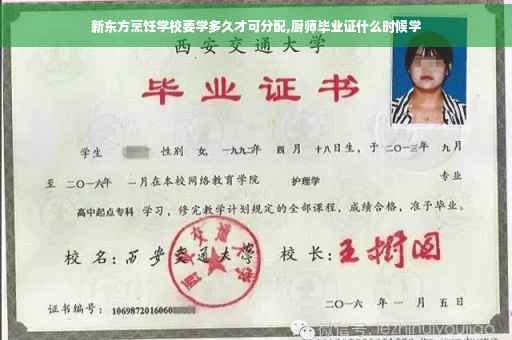 新东方烹饪学校要学多久才可分配,厨师毕业证什么时候学
西安交通大学
毕业证书
学生 性别 女, 一九九二年 四 月 十八日生, 于 二〇一三年 九月
至 二〇一六年 一月在本校网络教育学院 护理学 专业
高中起点专科 学习, 修完教学计划规定的全部课程, 成绩合格, 准予毕业。
校 名: 西安交通大学 校 长: 王树国
西安交通大学
二〇一六 年 一 月 五 日
证书编号: 1069872016060
微信号: jezhihuiyoujiao